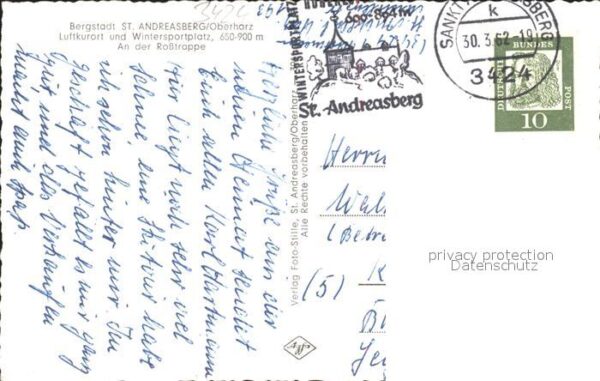 Bergstadt ST. ANDREASBERG/Oberharz
Luftkurort und Wintersportplatz, 650-900 m
An der Roßtrappe
Herzliche Grüße aus der
neuen Heimat sendet
Euch allen Karl Hartmann
Hier liegt noch sehr viel
Schnee eine Skitour habe
ich schon hinter mir. Im
Geschäft gefällt es mir ganz
gut und das Verkaufen
macht auch Spaß
Verlag Foto-Stille, St. Andreasberg/Oberharz
Alle Rechte vorbehalten
WINTERSPORTPLATZ
St. Andreasberg
SANKT ANDREASBERG
k
30.3.62-19
3424
DEUTSCHE
BUNDES
POST
10
Herrn
(Betr
(5)
privacy protection
Datenschutz